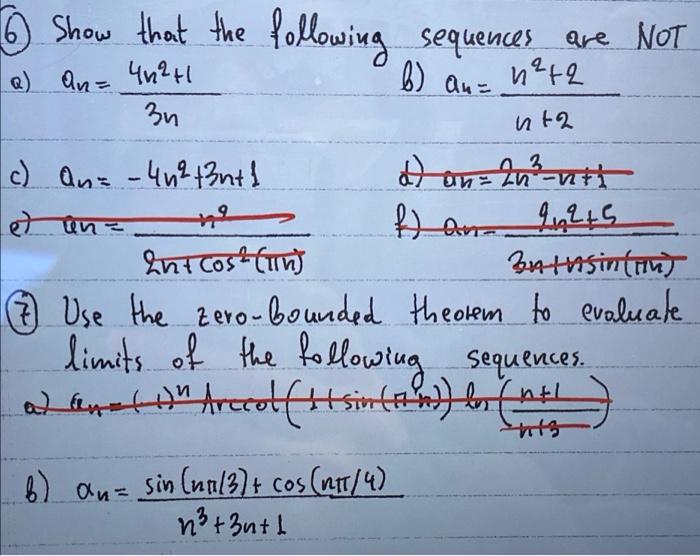 ⑥ Show that the following sequences are NOT
a) an = (4n²+1)/(3n) b) an = (n²+2)/(n+2)
c) an = -4n²+3n+1 d) an = 2n³-n+1
e) an = n⁹/(2n+cos²(πn)) f) an = (9n²+5)/(3n+nsin(πn))
⑦ Use the zero-bounded theorem to evaluate
limits of the following sequences.
a) an = (-1)ⁿ Arccot(1+sin(π n)) ln((n+1)/(n+3))
b) an = (sin(nπ/3)+cos(nπ/4))/(n³+3n+1)